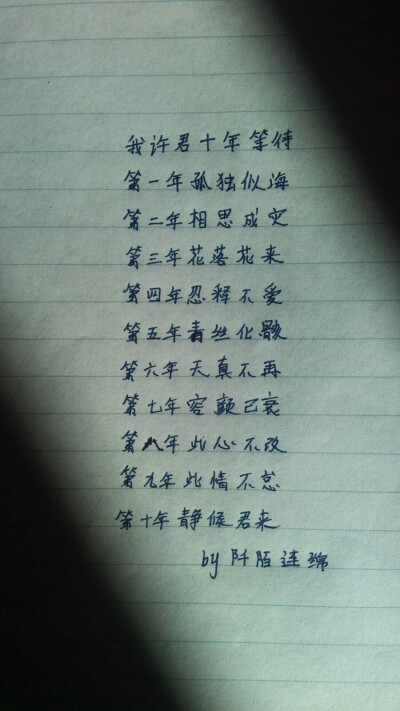 我许君十年等待
第一年孤独似海
第二年相思成灾
第三年花落花来
第四年忍释不爱
第五年青丝化骸
第六年天真不再
第七年容颜已衰
第八年此心不改
第九年此情不怠
第十年静候君来
by 阡陌连绵